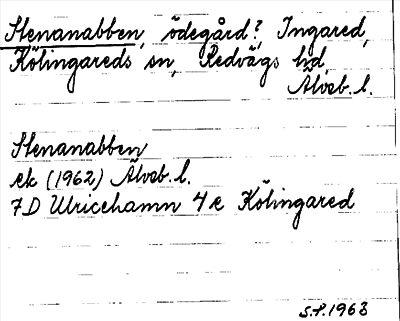 Stenanabben, ödegård?, Ingared,
Kölingareds sn, Redvägs hd,
Älvsb. l.
Stenanabben
ek (1962) Älvsb. l.
7D Ulricehamn 4e Kölingared
S.F. 1963